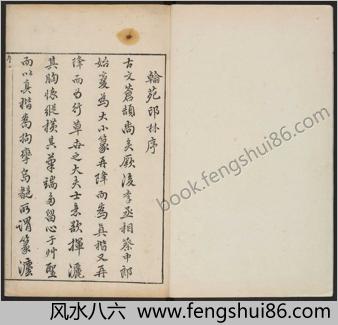 翰苑印林序
古文蒼頡尚矣厥後李丞相蔡中郎
始變為大小篆再降而為真楷又再
降而為行草古之大夫士多欲揮灑
其胸懷縱橫其筆端多留心于艸聖
而以真楷為拘攣烏覩所謂篆灋
book.fengshui86.com
风水八六 www.fengshui86.com